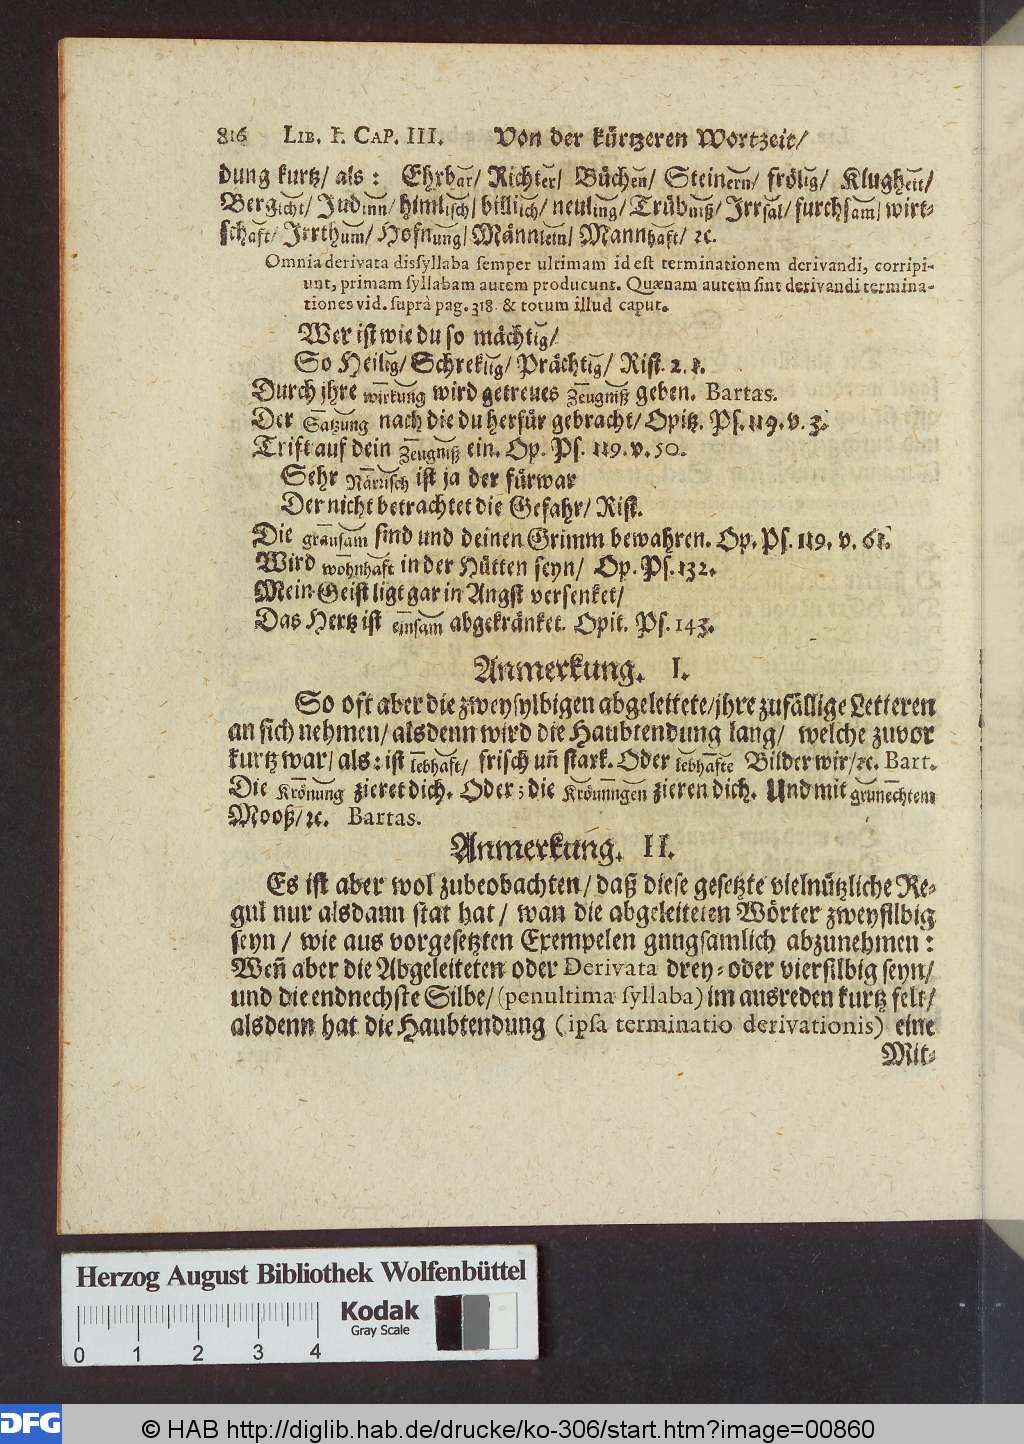 816 LIB. I. CAP. III. Von der kürtzeren Wortzeit/
dung kurtz/ als: Ehrbar/ Richter/ Büchen/ Steinern/ frölig/ Klugheit/
Bergicht/ Judinn/ himlisch/ billiich/ neuling/ Trübniß/ Irrsal/ furchsam/ wirt-
schaft/ Irrthum/ Hofnung/ Männlein/ Mannhaft/ ꝛc.
Omnia derivata dissyllaba semper ultimam id est terminationem derivandi, corripi-
unt, primam syllabam autem producunt. Quænam autem sint derivandi termina-
tiones vid. suprà pag. 318. & totum illud caput.
Wer ist wie du so mächtig/
So Heilig/ Schreklig/ Prächtig/ Rist. 2. 1.
Durch jhre wirkung wird getreues Zeugniß geben. Bartas.
Der Satzung nach die du herfür gebracht/ Opitz. Ps. 119. v. 3.
Trift auf dein Zeugniß ein. Op. Ps. 119. v. 50.
Sehr Närrisch ist ja der fürwar
Der nicht betrachtet die Gefahr/ Rist.
Die grausam sind und deinen Grimm bewahren. Op. Ps. 119. v. 61.
Wird wohnhaft in der Hütten seyn/ Op. Ps. 132.
Mein Geist ligt gar in Angst versenket/
Das Hertz ist einsam abgekränket. Opit. Ps. 143.
Anmerkung. I.
So oft aber die zweysylbigen abgeleitete/ jhre zufällige Letteren
an sich nehmen/ alsdenn wird die Haubtendung lang/ welche zuvor
kurtz war/ als: ist lebhaft/ frisch uñ stark. Oder lebhafte Bilder wir/ ꝛc. Bart.
Die Krönung zieret dich. Oder; die Krönungen zieren dich. Und mit grunechtem
Mooß/ ꝛc. Bartas.
Anmerkung. II.
Es ist aber wol zubeobachten/ daß diese gesetzte vielnützliche Re-
gul nur alsdann stat hat/ wan die abgeleiteten Wörter zweysilbig
seyn/ wie aus vorgesetzten Exempelen gnugsamlich abzunehmen:
Weñ aber die Abgeleiteten oder Derivata drey- oder viersilbig seyn/
und die endnechste Silbe/ (penultima syllaba) im ausreden kurtz felt/
alsdenn hat die Haubtendung (ipsa terminatio derivationis) eine
Mit-
Herzog August Bibliothek Wolfenbüttel
Kodak
Gray Scale
0 1 2 3 4
DFG © HAB http://diglib.hab.de/drucke/ko-306/start.htm?image=00860